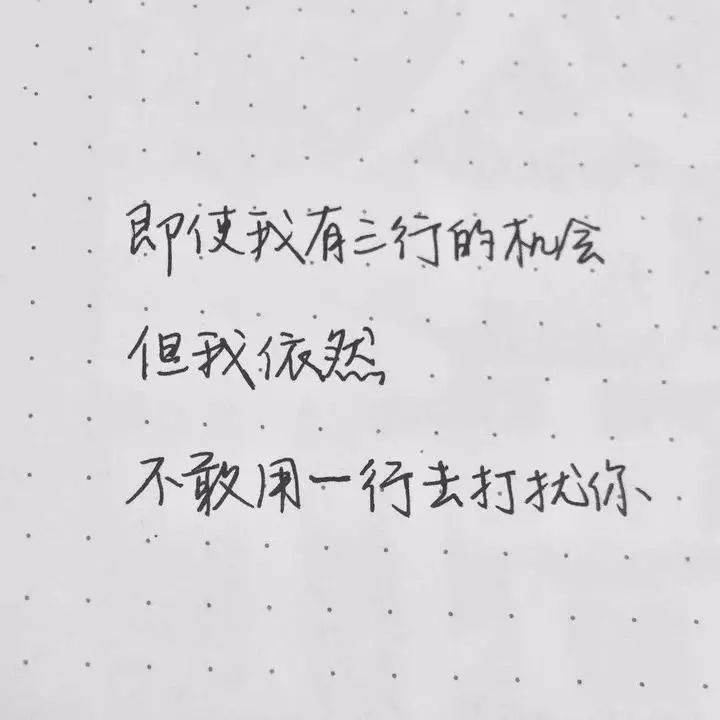 即使我有三行的机会
但我依然
不敢用一行去打扰你